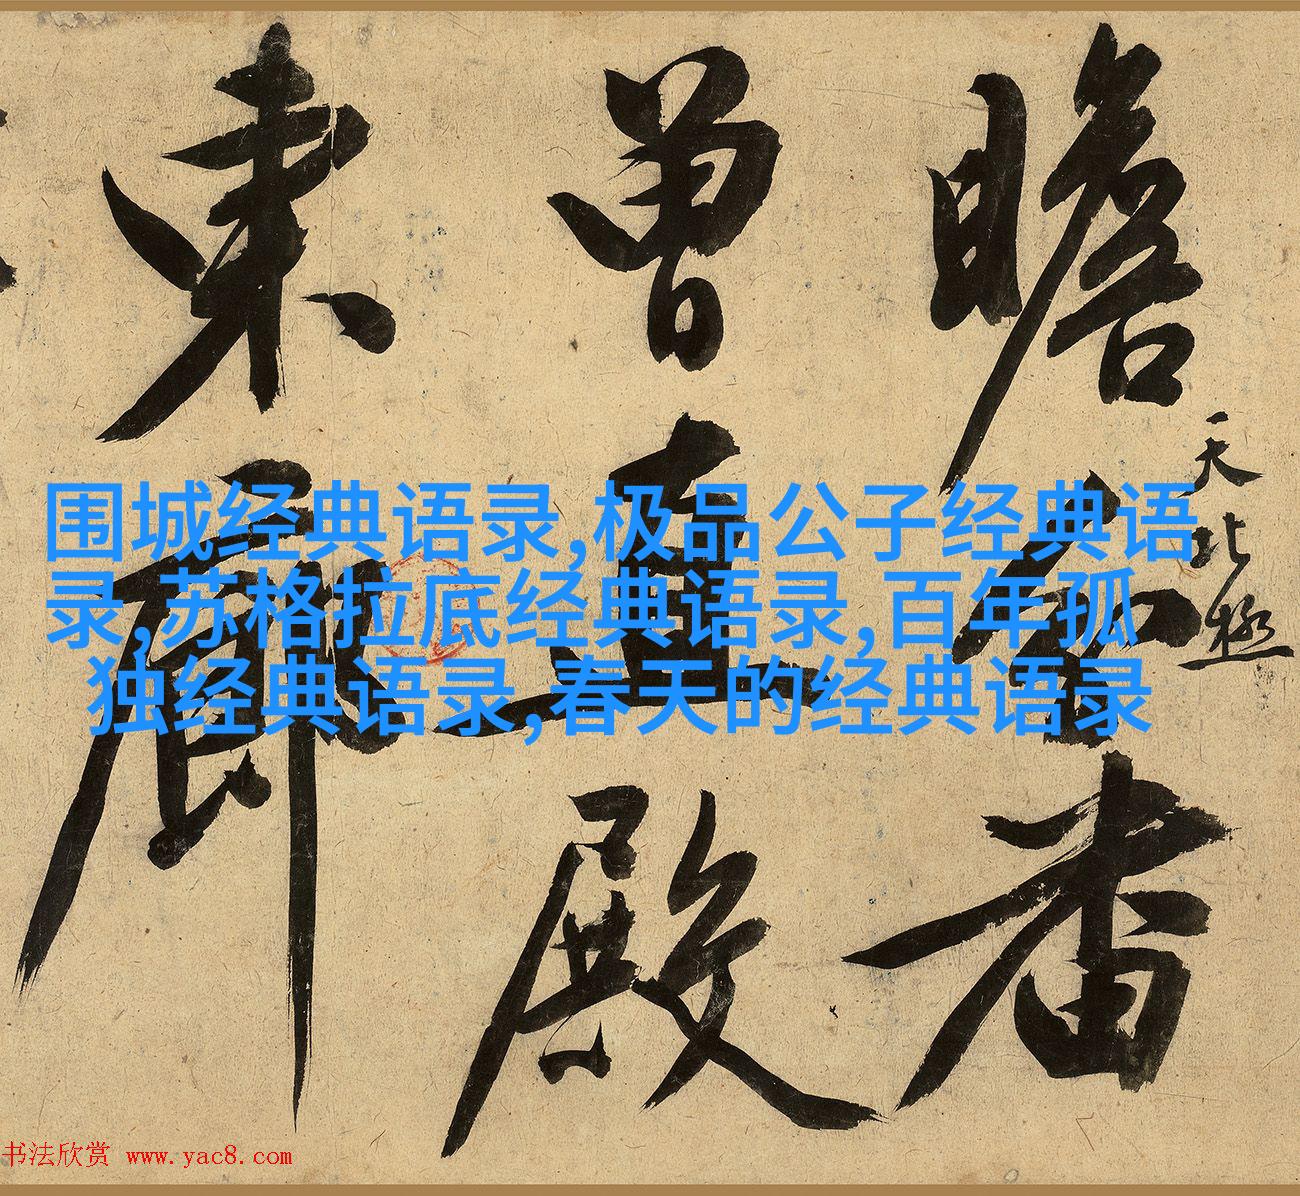 瞻
天北極
曾直殿
東廊
围城经典语录,极品公子经典语
录,苏格拉底经典语录,百年孤
独经典语录,春天的经典语录
书法欣赏 www.yac8.com